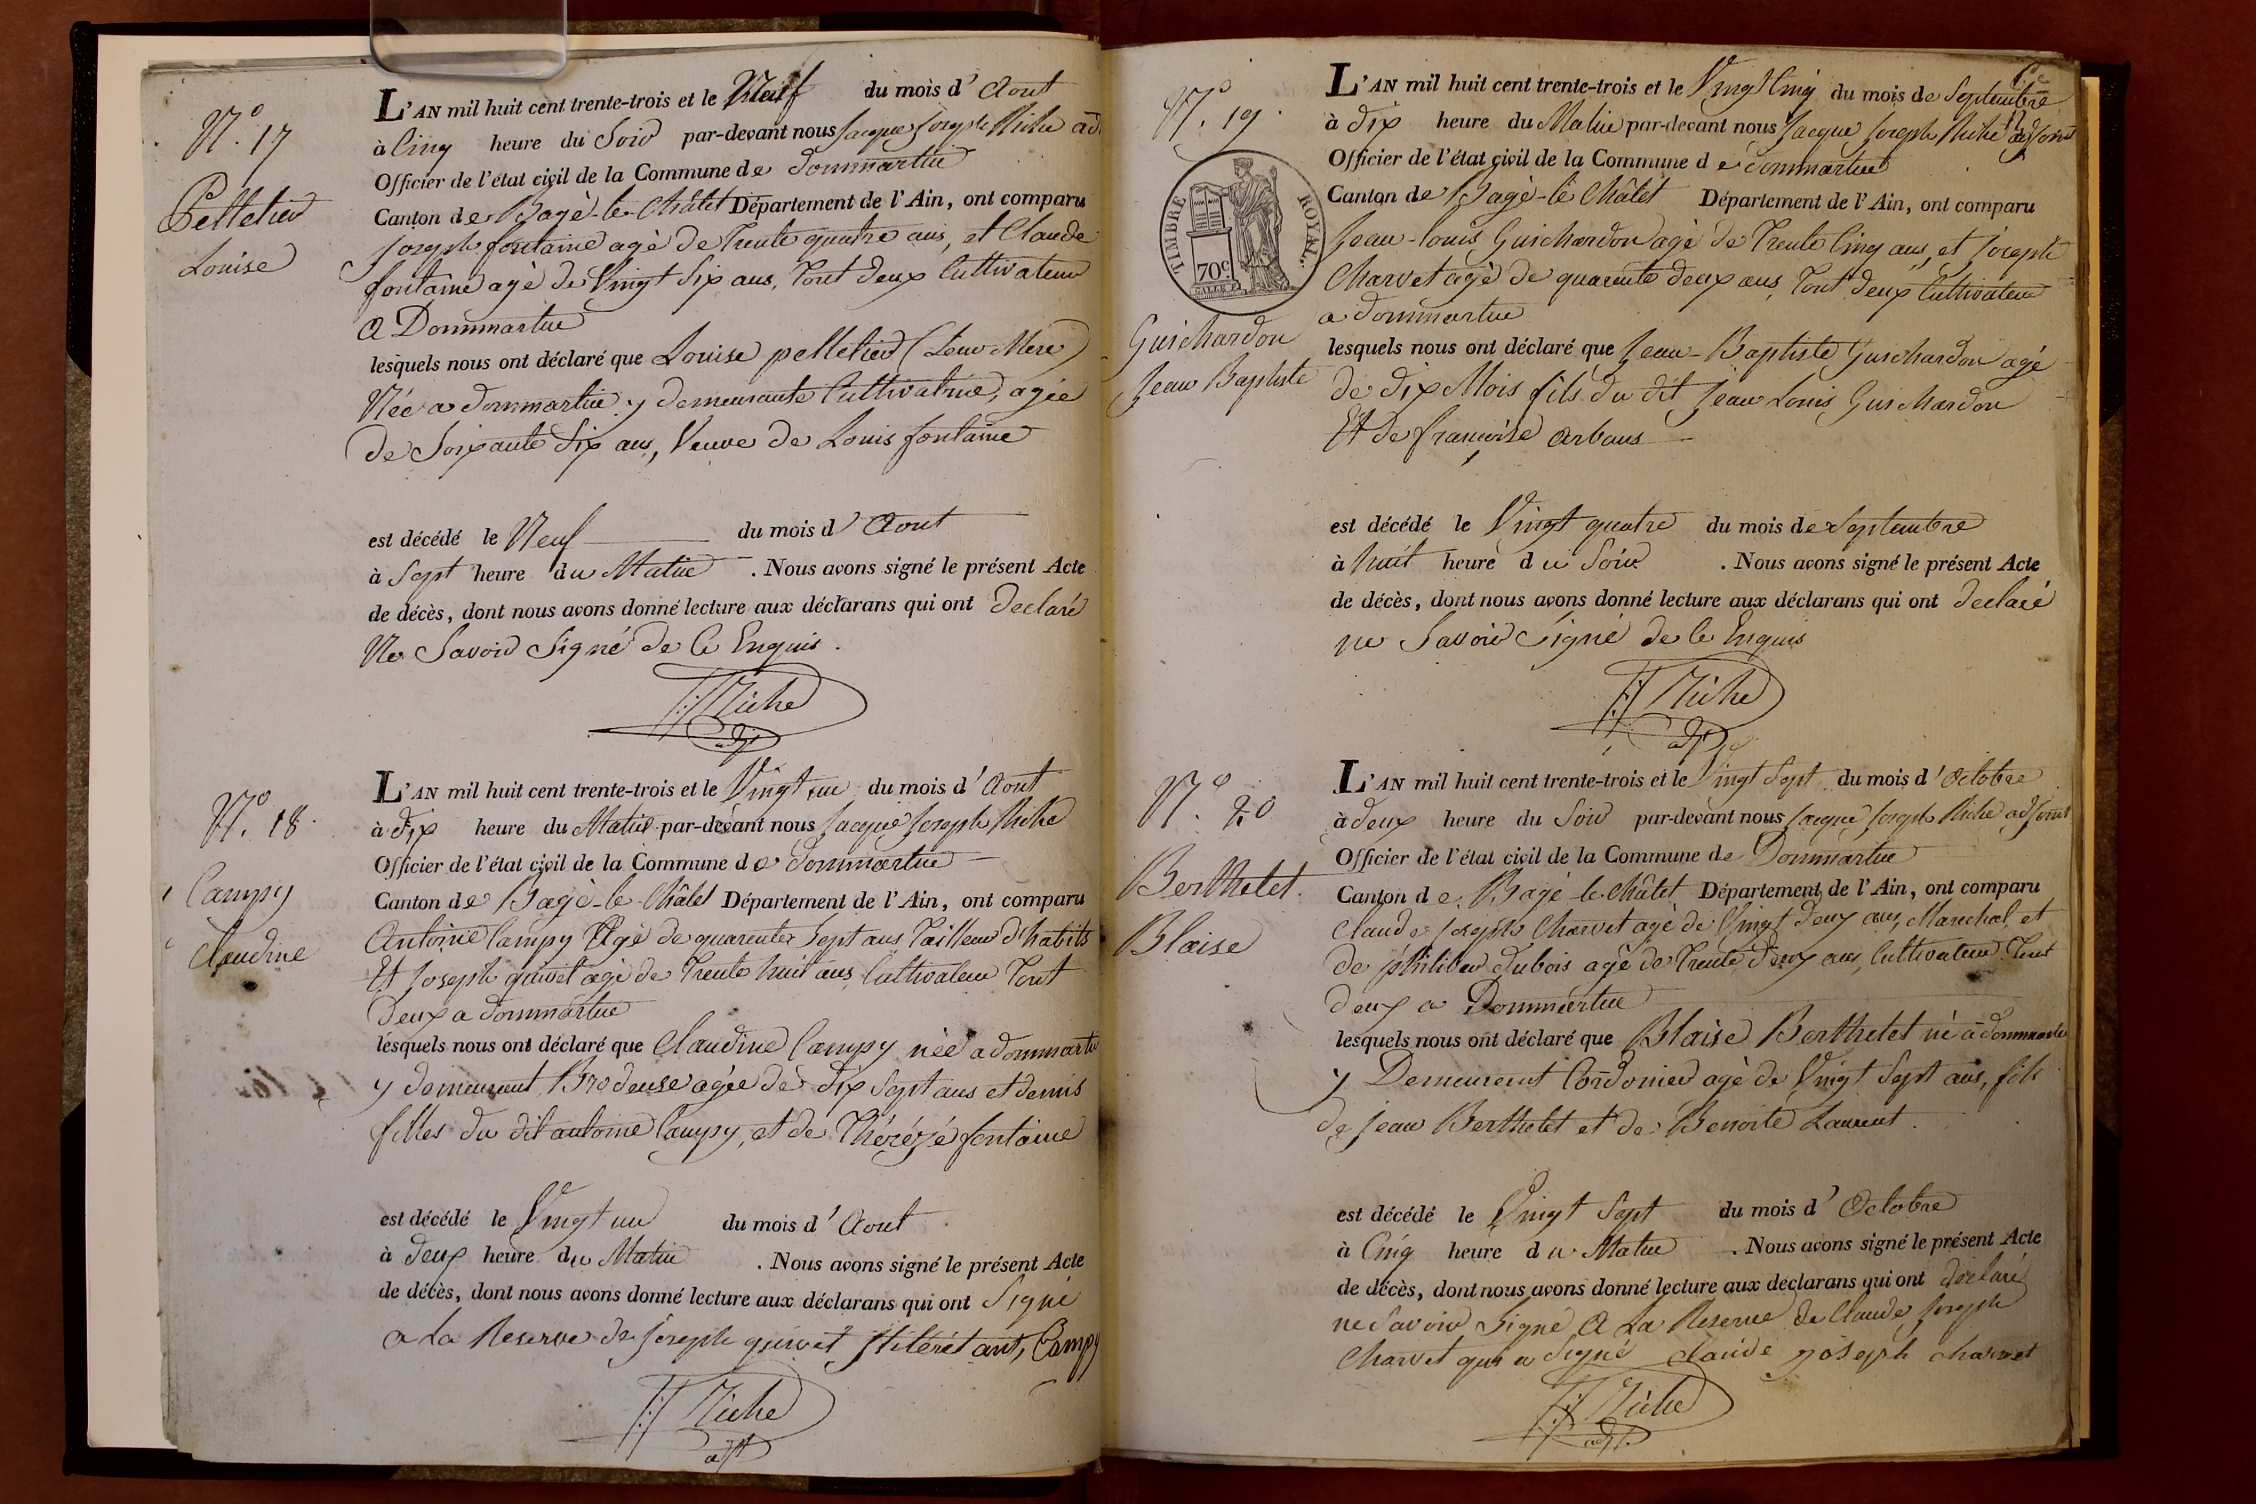 N.° 17
Pelletier
Louise
L'AN mil huit cent trente-trois et le Neuf du mois d' Aout
à Cinq heure du Soir par-devant nous Jacque Joseph Niche adj
Officier de l'état civil de la Commune de dommartin
Canton de Bagé-le-Châtel Département de l'Ain, ont comparu
Joseph fontaine agé de Trente quatre ans, et Claude
fontaine agé de Vingt Six ans, Tout deux Cultivateur
a Dommartin
lesquels nous ont déclaré que Louise pelletier (Leur Mere)
Née a dommartin y demeurante Cultivatrice, agée
de Soixante Six ans, Veuve de Louis fontaine
est décédé le Neuf du mois d' Aout
à Sept heure du Matin . Nous avons signé le présent Acte
de décès, dont nous avons donné lecture aux déclarans qui ont declaré
Ne Savoir Signé de Ce Enquis.
JJ Niche
adj
N.° 18.
Campy
Claudine
L'AN mil huit cent trente-trois et le Vingt un du mois d' Aout
à dix heure du Matin par-devant nous Jacque Joseph Niche
Officier de l'état civil de la Commune de Dommartin
Canton de Bagé-le-Châtel Département de l'Ain, ont comparu
Antoine Campy Agé de quarente Sept ans Tailleur d'habits
Et Joseph guivet agé de Trente huit ans, Cultivateur Tout
Deux a dommartin
lesquels nous ont déclaré que Claudine Campy née a dommartin
y demeurent Brodeuse agée de dix Sept ans et demis
filles du dit antoine Campy, et de Thérézé fontaine
est décédé le Vingt un du mois d' Aout
à deux heure du Matin . Nous avons signé le présent Acte
de décès, dont nous avons donné lecture aux déclarans qui ont Signé
a La Reserve de Joseph guivet Illérét ant, Campy
JJ Niche
adj
N.° 19.
TIMBRE ROYAL.
70c
Guichardon
Jean Baptiste
L'AN mil huit cent trente-trois et le Vingt Cinq du mois de Septembre
à dix heure du Matin par-devant nous Jacque Joseph Niche adjoint
Officier de l'état civil de la Commune de dommartin
Canton de Bagé-le Châtel Département de l'Ain, ont comparu
Jean-Louis Guichardon agé de Trente Cinq ans, et Joseph
Charvet agé de quarente deux ans, Tout deux Cultivateur
a dommartin
lesquels nous ont déclaré que Jean-Baptiste Guichardon agé
de dix Mois fils du dit Jean Louis Guichardon
Et de françoise arbans
est décédé le Vingt quatre du mois de Septembre
à huit heure du Soir . Nous avons signé le présent Acte
de décès, dont nous avons donné lecture aux déclarans qui ont declaré
ne Savoir Signé de Ce Enquis
JJ Niche
adj
N.° 20
Berthelet.
Blaise
L'AN mil huit cent trente-trois et le Vingt Sept du mois d' Octobre
à deux heure du Soir par-devant nous Jacque Joseph Niche adjoint
Officier de l'état civil de la Commune de Dommartin
Canton de Bagé le Châtel Département de l'Ain, ont comparu
Claude Joseph Charvet agé de Vingt deux ans, Marechal, et
de philiber dubois agé de Trente deux ans, Cultivateur Tout
deux a Dommartin
lesquels nous ont déclaré que Blaise Berthelet né a dommartin
y Demeurent Cordonier agé de Vingt Sept ans, fils
de Jean Berthelet et de Benoite Laurent.
est décédé le Vingt Sept du mois d' Octobre
à Cinq heure du Matin . Nous avons signé le présent Acte
de décès, dont nous avons donné lecture aux déclarans qui ont declaré
ne Savoir Signé A La Reserve de Claude Joseph
Charvet qui a Signé claude joseph charvet
JJ Niche
adj